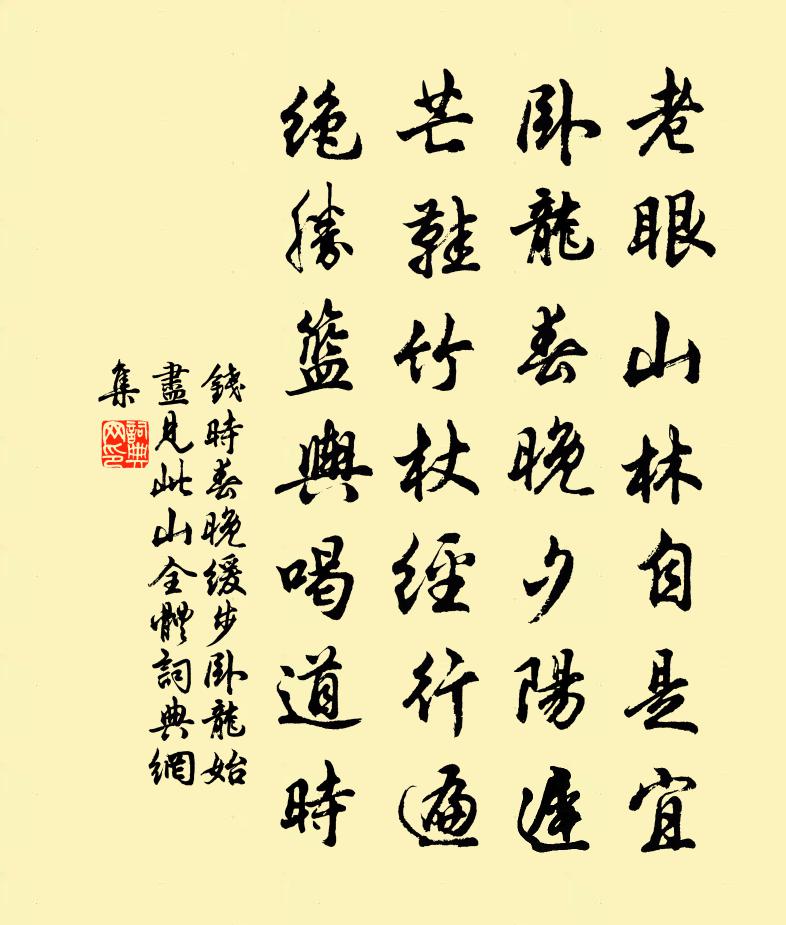 老眼山林自是宜
卧龍春晚夕陽遲
芒鞋竹杖經行遍
絶勝籃輿喝道時
錢時春晚緩步卧龍始
盡見此山全體詞典網
集
詞典
网印